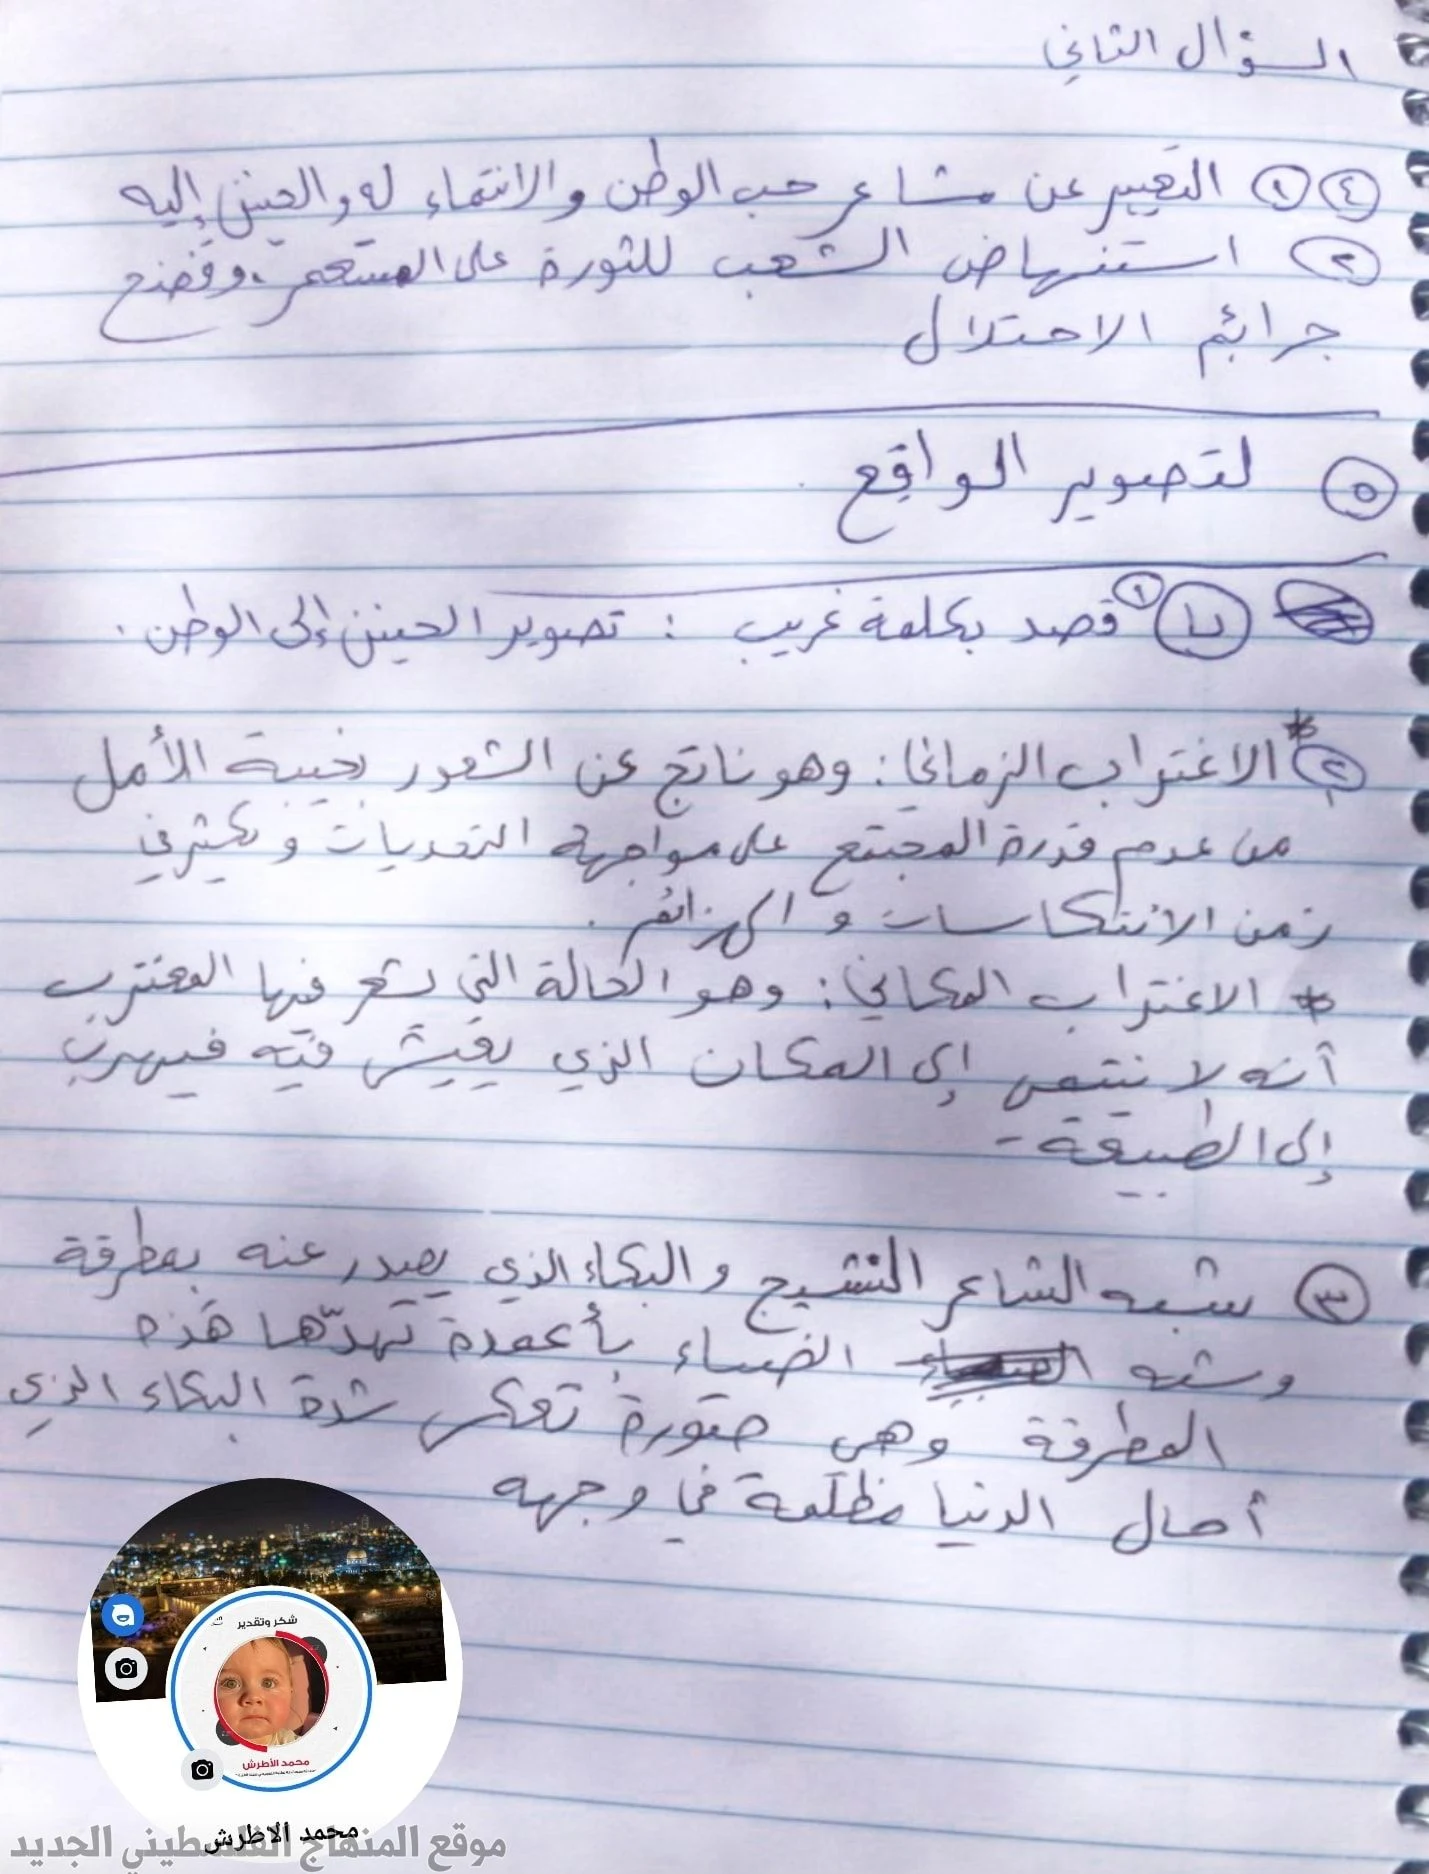 السؤال الثاني
٤ ١ التعبير عن مشاعر حب الوطن والانتماء له والحنين إليه
٢ استنهاض الشعب للثورة على المستعمر، وفضح
جرائم الاحتلال
٥ لتصوير الواقع
ب ١ قصد بكلمة غريب : تصوير الحنين إلى الوطن .
٢ * الاغتراب الزماني : وهو ناتج عن الشعور بخيبة الأمل
من عدم قدرة المجتمع على مواجهة التحديات ويكثر في
زمن الانتكاسات و الهزائم .
* الاغتراب المكاني : وهو الحالة التي يشعر فيها المغترب
أنه لا ينتمي إلى المكان الذي يعيش فيه فيهرب
إلى الطبيعة -
٣ شبه الشاعر النشيج والبكاء الذي يصدر عنه بمطرقة
وشبه الضياء بأعمدة تهدّها هذه
المطرقة وهي صورة تعكس شدة البكاء الذي
أحال الدنيا مظلمة في وجهه
شكر وتقدير
محمد الأطرش
محمد الاطرش
موقع المنهاج الفلسطيني الجديد